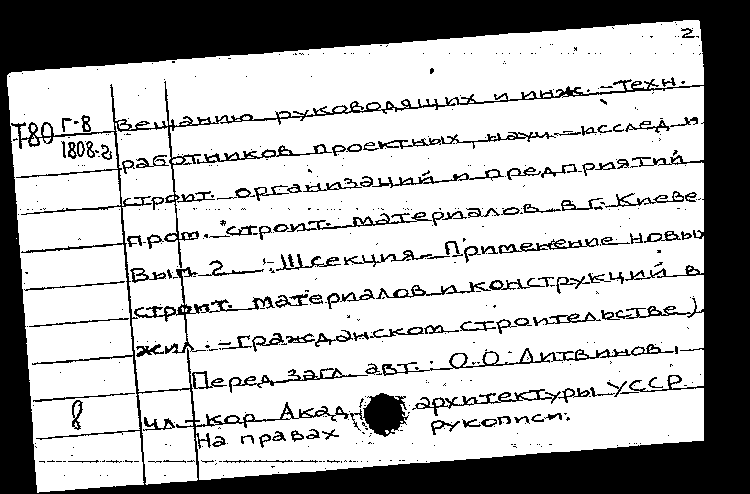 2
Т80 Г-8
1808-2
вещанию руководящих и инж.-техн.
работников проектных, науч.-исслед и
строит. организаций и предприятий
пром. строит. материалов в г. Киеве
Вып. 2. III секция - Применение новых
строит. материалов и конструкций в
жил.-гражданском строительстве)
Перед загл. авт.: О.О. Литвинов,
8 чл.-кор Акад. архитектуры УССР
На правах рукописи.